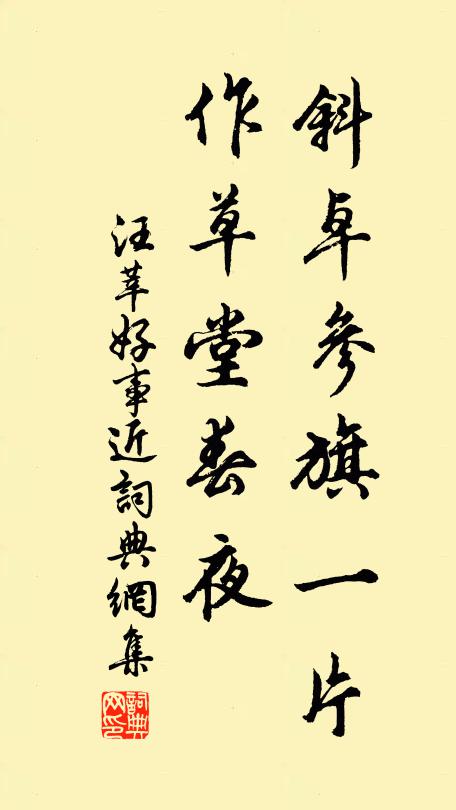 斜卓參旗一片
作草堂春夜
汪莘好事近詞典網集
詞典网印